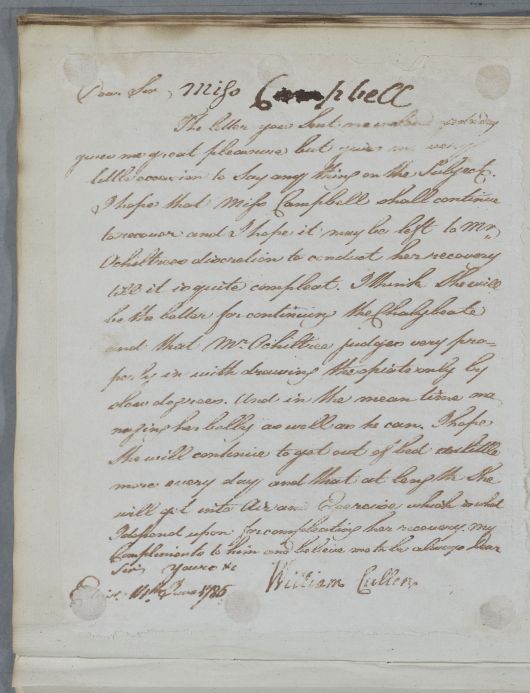 Dear Sir, Miss Campbell
The letter you sent me
gives me great pleasure but gives me very
little occasion to say any thing on the Subject.
I hope that Miss Campbell shall continue
to recover and I hope it may be left to Mr.
Ochiltrees discretion to conduct her recovery
till it is quite compleat. I think she will
be the better for continuing the Chalybeate
and that Mr. Ochiltree judges very pro-
perly in with drawing the opiate only by
slow degrees. And in the mean time ma
naging her belly as well as he can. I hope
she will continue to get out of bed a little
more every day and that at length she
will get into Air and Exercise which is what
I depend upon for compleating her recovery. my
Compliments to him and believe me to be always Dear
Sir Yours &c
Edinr. June 1785 William Cullen